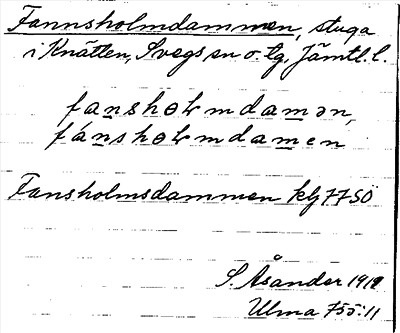 Fannsholmdammen, stuga
i Knätten, Svegs sn o. tg, Jämtl. l.
fanshoɫmdamən,
fánshoɫmdamen
Fansholmsdammen klj 77 SÖ
S. Åsander 1919
Ulma 755:11